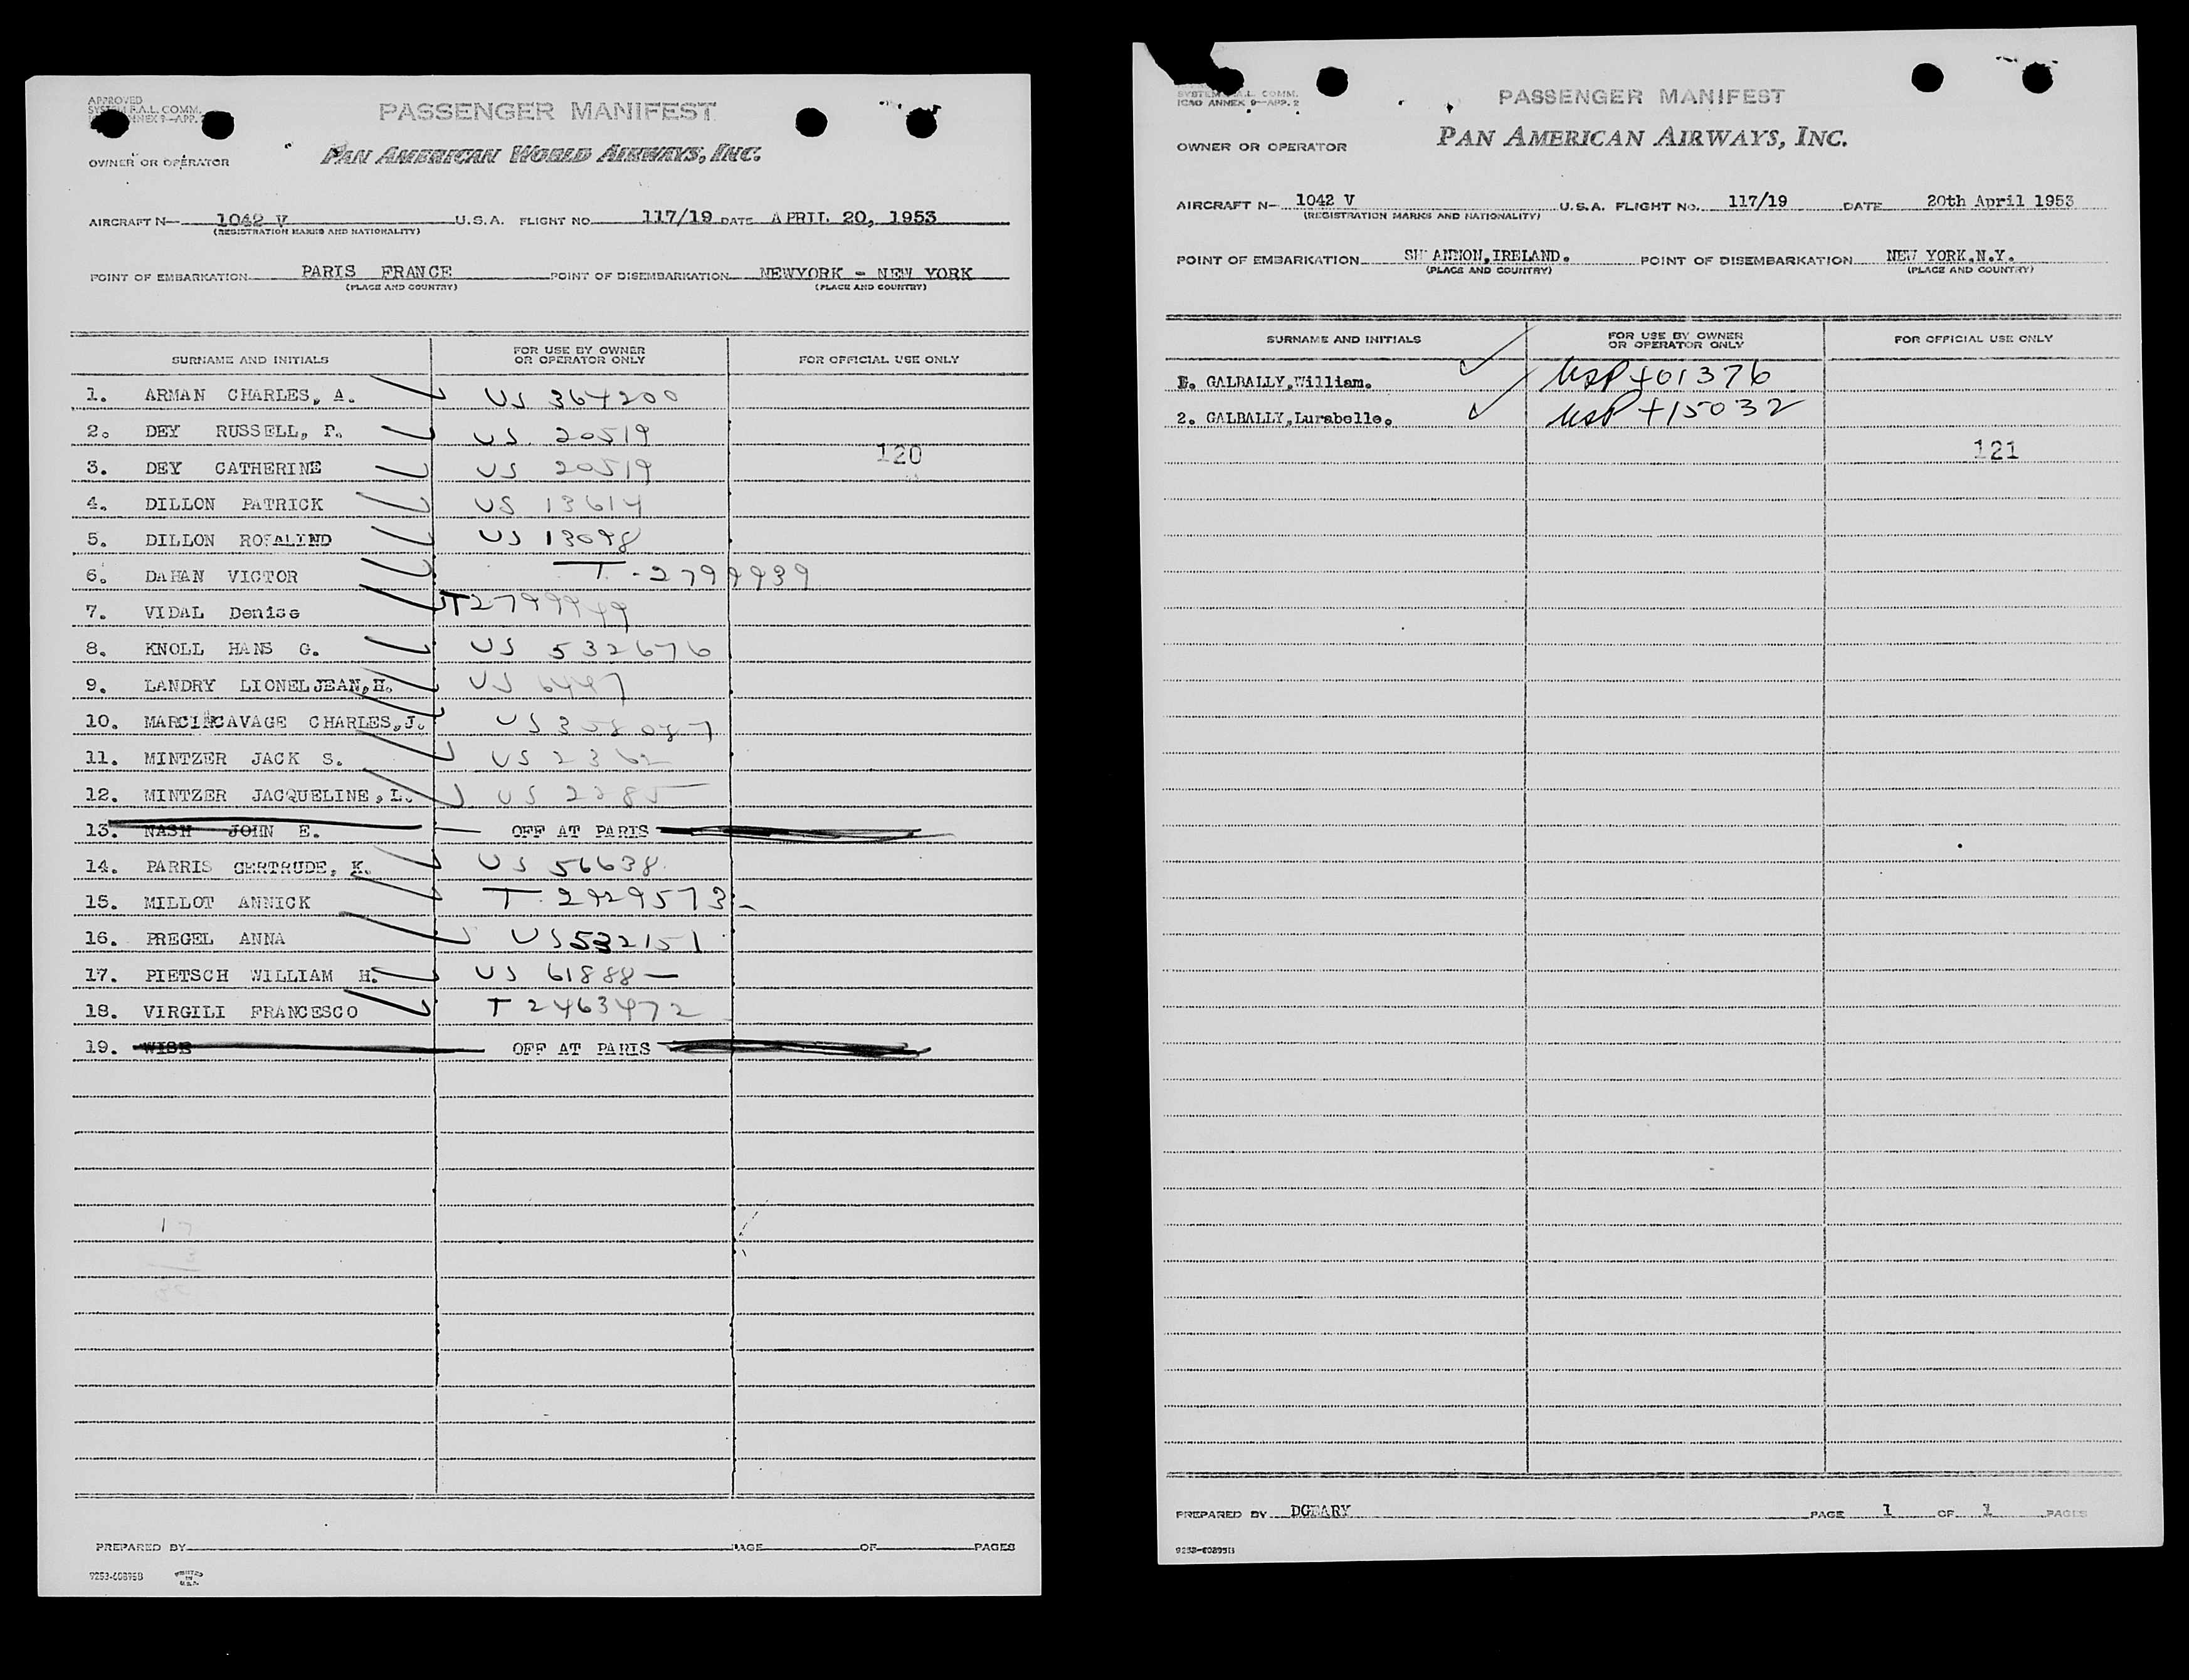 APPROVED
SYSTEM F.A.L. COMM.
ANNEX 9—APP.
PASSENGER MANIFEST
OWNER OR OPERATOR
PAN AMERICAN WORLD AIRWAYS, INC.
AIRCRAFT N— 1042 V U.S.A. FLIGHT NO. 117/19 DATE APRIL 20, 1953
(REGISTRATION MARKS AND NATIONALITY)
POINT OF EMBARKATION PARIS FRANCE POINT OF DISEMBARKATION NEWYORK - NEW YORK
(PLACE AND COUNTRY) (PLACE AND COUNTRY)
SURNAME AND INITIALS FOR USE BY OWNER OR OPERATOR ONLY FOR OFFICIAL USE ONLY
1. ARMAN CHARLES, A. US 364200
2. DEY RUSSELL, P. US 20519
120
3. DEY CATHERINE US 20519
4. DILLON PATRICK US 13614
5. DILLON ROSALIND US 13098
6. DAHAN VICTOR T-2799939
7. VIDAL Denise T2799949
8. KNOLL HANS G. US 532676
9. LANDRY LIONEL JEAN, H. US 6447
10. MARCINCAVAGE CHARLES, J. US 308087
11. MINTZER JACK S. US 2362
12. MINTZER JACQUELINE, L. US 2285
13. NASH JOHN E. OFF AT PARIS
14. PARRIS GERTRUDE, K. US 56638
15. MILLOT ANNICK T. 2929573-
16. PREGEL ANNA US 532151
17. PIETSCH WILLIAM H. US 61888—
18. VIRGILI FRANCESCO T 2463472
19. WISE OFF AT PARIS
17
PREPARED BY PAGE OF PAGES
9253-60895B
PRINTED
IN
U.S.A.
SYSTEM F.A.L. COMM.
ICAO ANNEX 9—APP. 2
PASSENGER MANIFEST
PAN AMERICAN AIRWAYS, INC.
OWNER OR OPERATOR
AIRCRAFT N— 1042 V U.S.A. FLIGHT NO. 117/19 DATE 20th April 1953
(REGISTRATION MARKS AND NATIONALITY)
POINT OF EMBARKATION SHANNON, IRELAND. POINT OF DISEMBARKATION NEW YORK, N.Y.
(PLACE AND COUNTRY) (PLACE AND COUNTRY)
SURNAME AND INITIALS FOR USE BY OWNER OR OPERATOR ONLY FOR OFFICIAL USE ONLY
1. GALBALLY, William. USP 401376
2. GALBALLY, Lurabelle. USP 415032
121
PREPARED BY DGEARY PAGE 1 OF 1 PAGES
9253-60895B